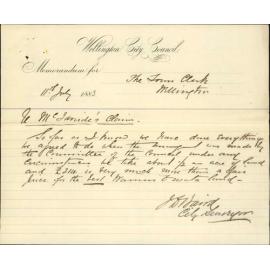 Wellington City Council.
Memorandum for
The Town Clerk
11th July 1883
Wellington
Mc
Claim.
So far as I know we have done everything
we agreed to do when the was made by
the Committee of the Council under any
circumstances we take about of land
and is very much more than a fair
price for the best land.
J D Baird
City Surveyor